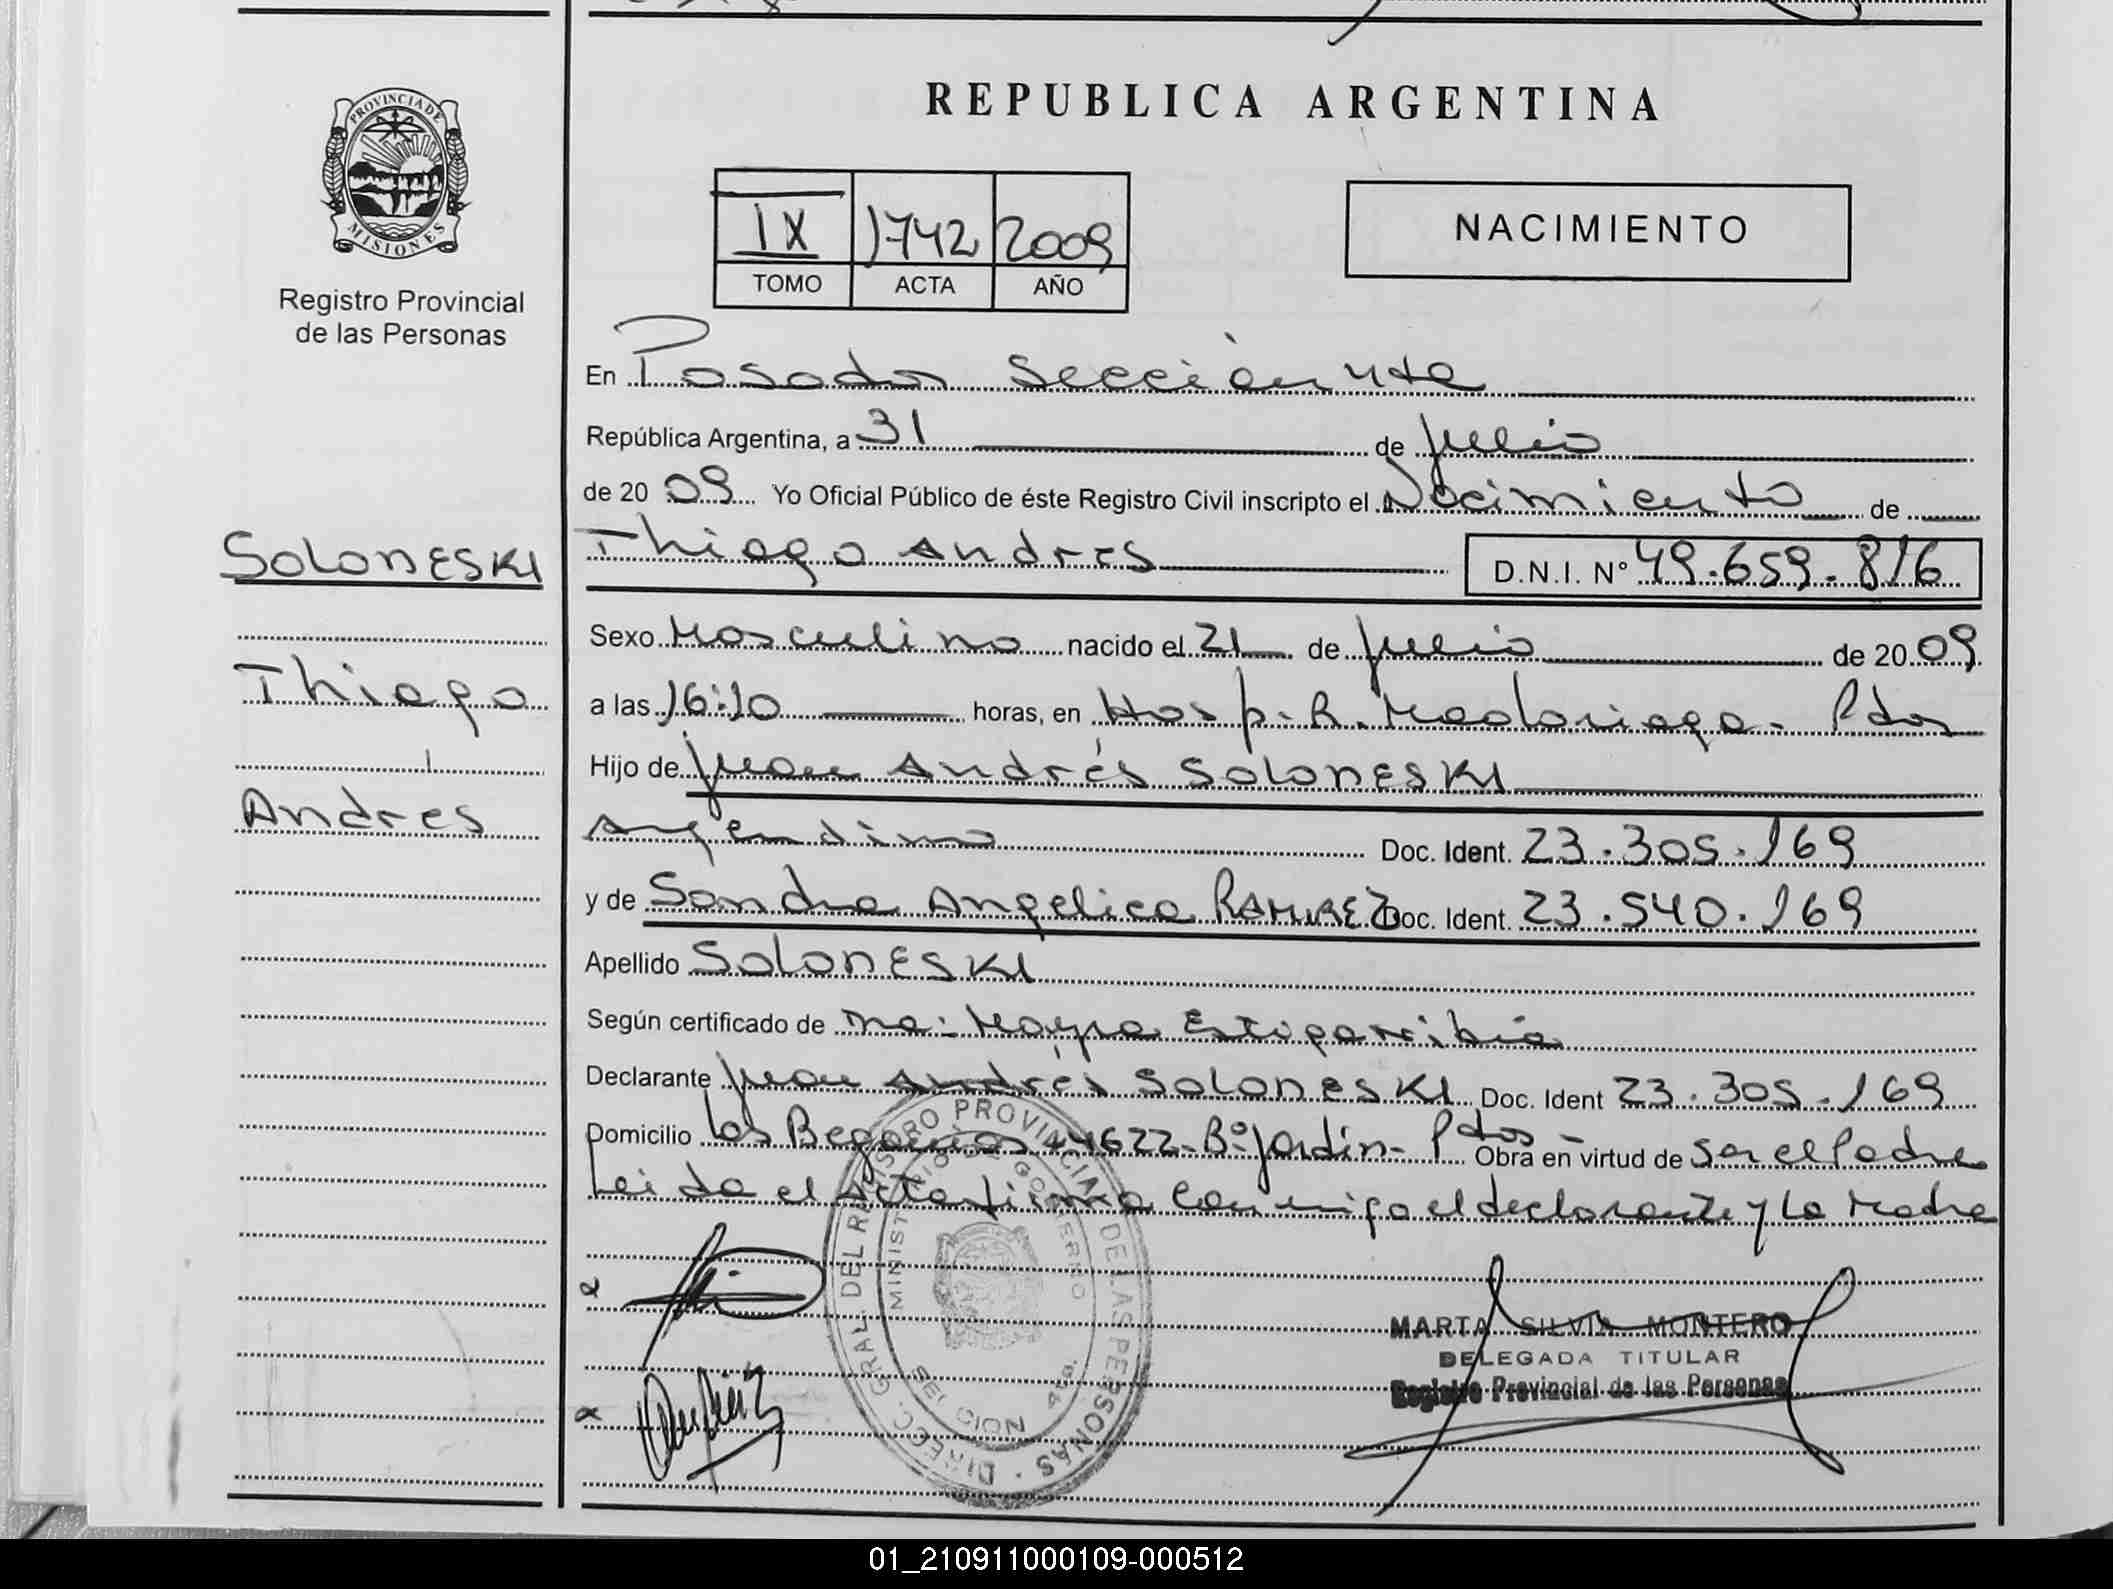 PROVINCIA DE
MISIONES
Registro Provincial
de las Personas
REPUBLICA ARGENTINA
IX 1742 2009
TOMO ACTA AÑO
NACIMIENTO
En Posadas Sección 4ta
República Argentina, a 31 de Julio
de 2009 Yo Oficial Público de éste Registro Civil inscripto el Nacimiento de
Thiago Andres D.N.I. Nº 49.659.816
Sexo Masculino nacido el 21 de Julio de 2009
a las 16:10 horas, en Hosp. R. Madariaga - Pdas
Hijo de Juan Andrés SOLONESKI
Argentino Doc. Ident. 23.305.169
y de Sandra Angelica RAMIREZ Doc. Ident. 23.540.169
Apellido SOLONESKI
Según certificado de Mayra
Declarante Juan Andrés SOLONESKI Doc. Ident 23.305.169
Domicilio Las Begonias 4622-Bº Jardín- Pdas - Obra en virtud de Ser el Padre
Leida el Acta firma conmigo el declarante y La Madre
SOLONESKI
Thiago
Andres
DIRECC. GRAL. DEL REGISTRO PROVINCIAL DE LAS PERSONAS
MINISTERIO DE GOBIERNO
SECCION 4ta.
MARTA SILVIA MONTERO
DELEGADA TITULAR
Registro Provincial de las Personas
01_210911000109-000512